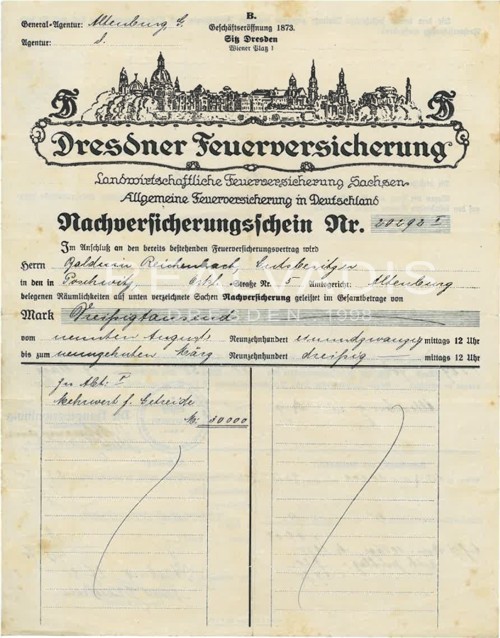 B.
General-Agentur: Altenburg S.
Geschäftseröffnung 1873.
Agentur:
Sitz Dresden
Wiener Platz 1
Dresdner Feuerversicherung
Landwirtschaftliche Feuerversicherung Sachsen-
Allgemeine Feuerversicherung in Deutschland
Nachversicherungsschein Nr. 20292 I
Im Anschluß an den bereits bestehenden Feuerversicherungsvertrag wird
Herrn Balduin Reichenbach, Gutsbesitzer
in den in Poschwitz Straße Nr. 5 Amtsgericht: Altenburg
belegenen Räumlichkeiten auf unten verzeichnete Sachen Nachversicherung geleistet im Gesamtbetrage von
Mark Dreißigtausend
DRESDEN 1998
vom neunten August Neunzehnhundert einundzwanzig mittags 12 Uhr
bis zum neunzehnten März Neunzehnhundert dreißig mittags 12 Uhr
Zu Abt: I
Mehrwert f. Getreide
M. 0000